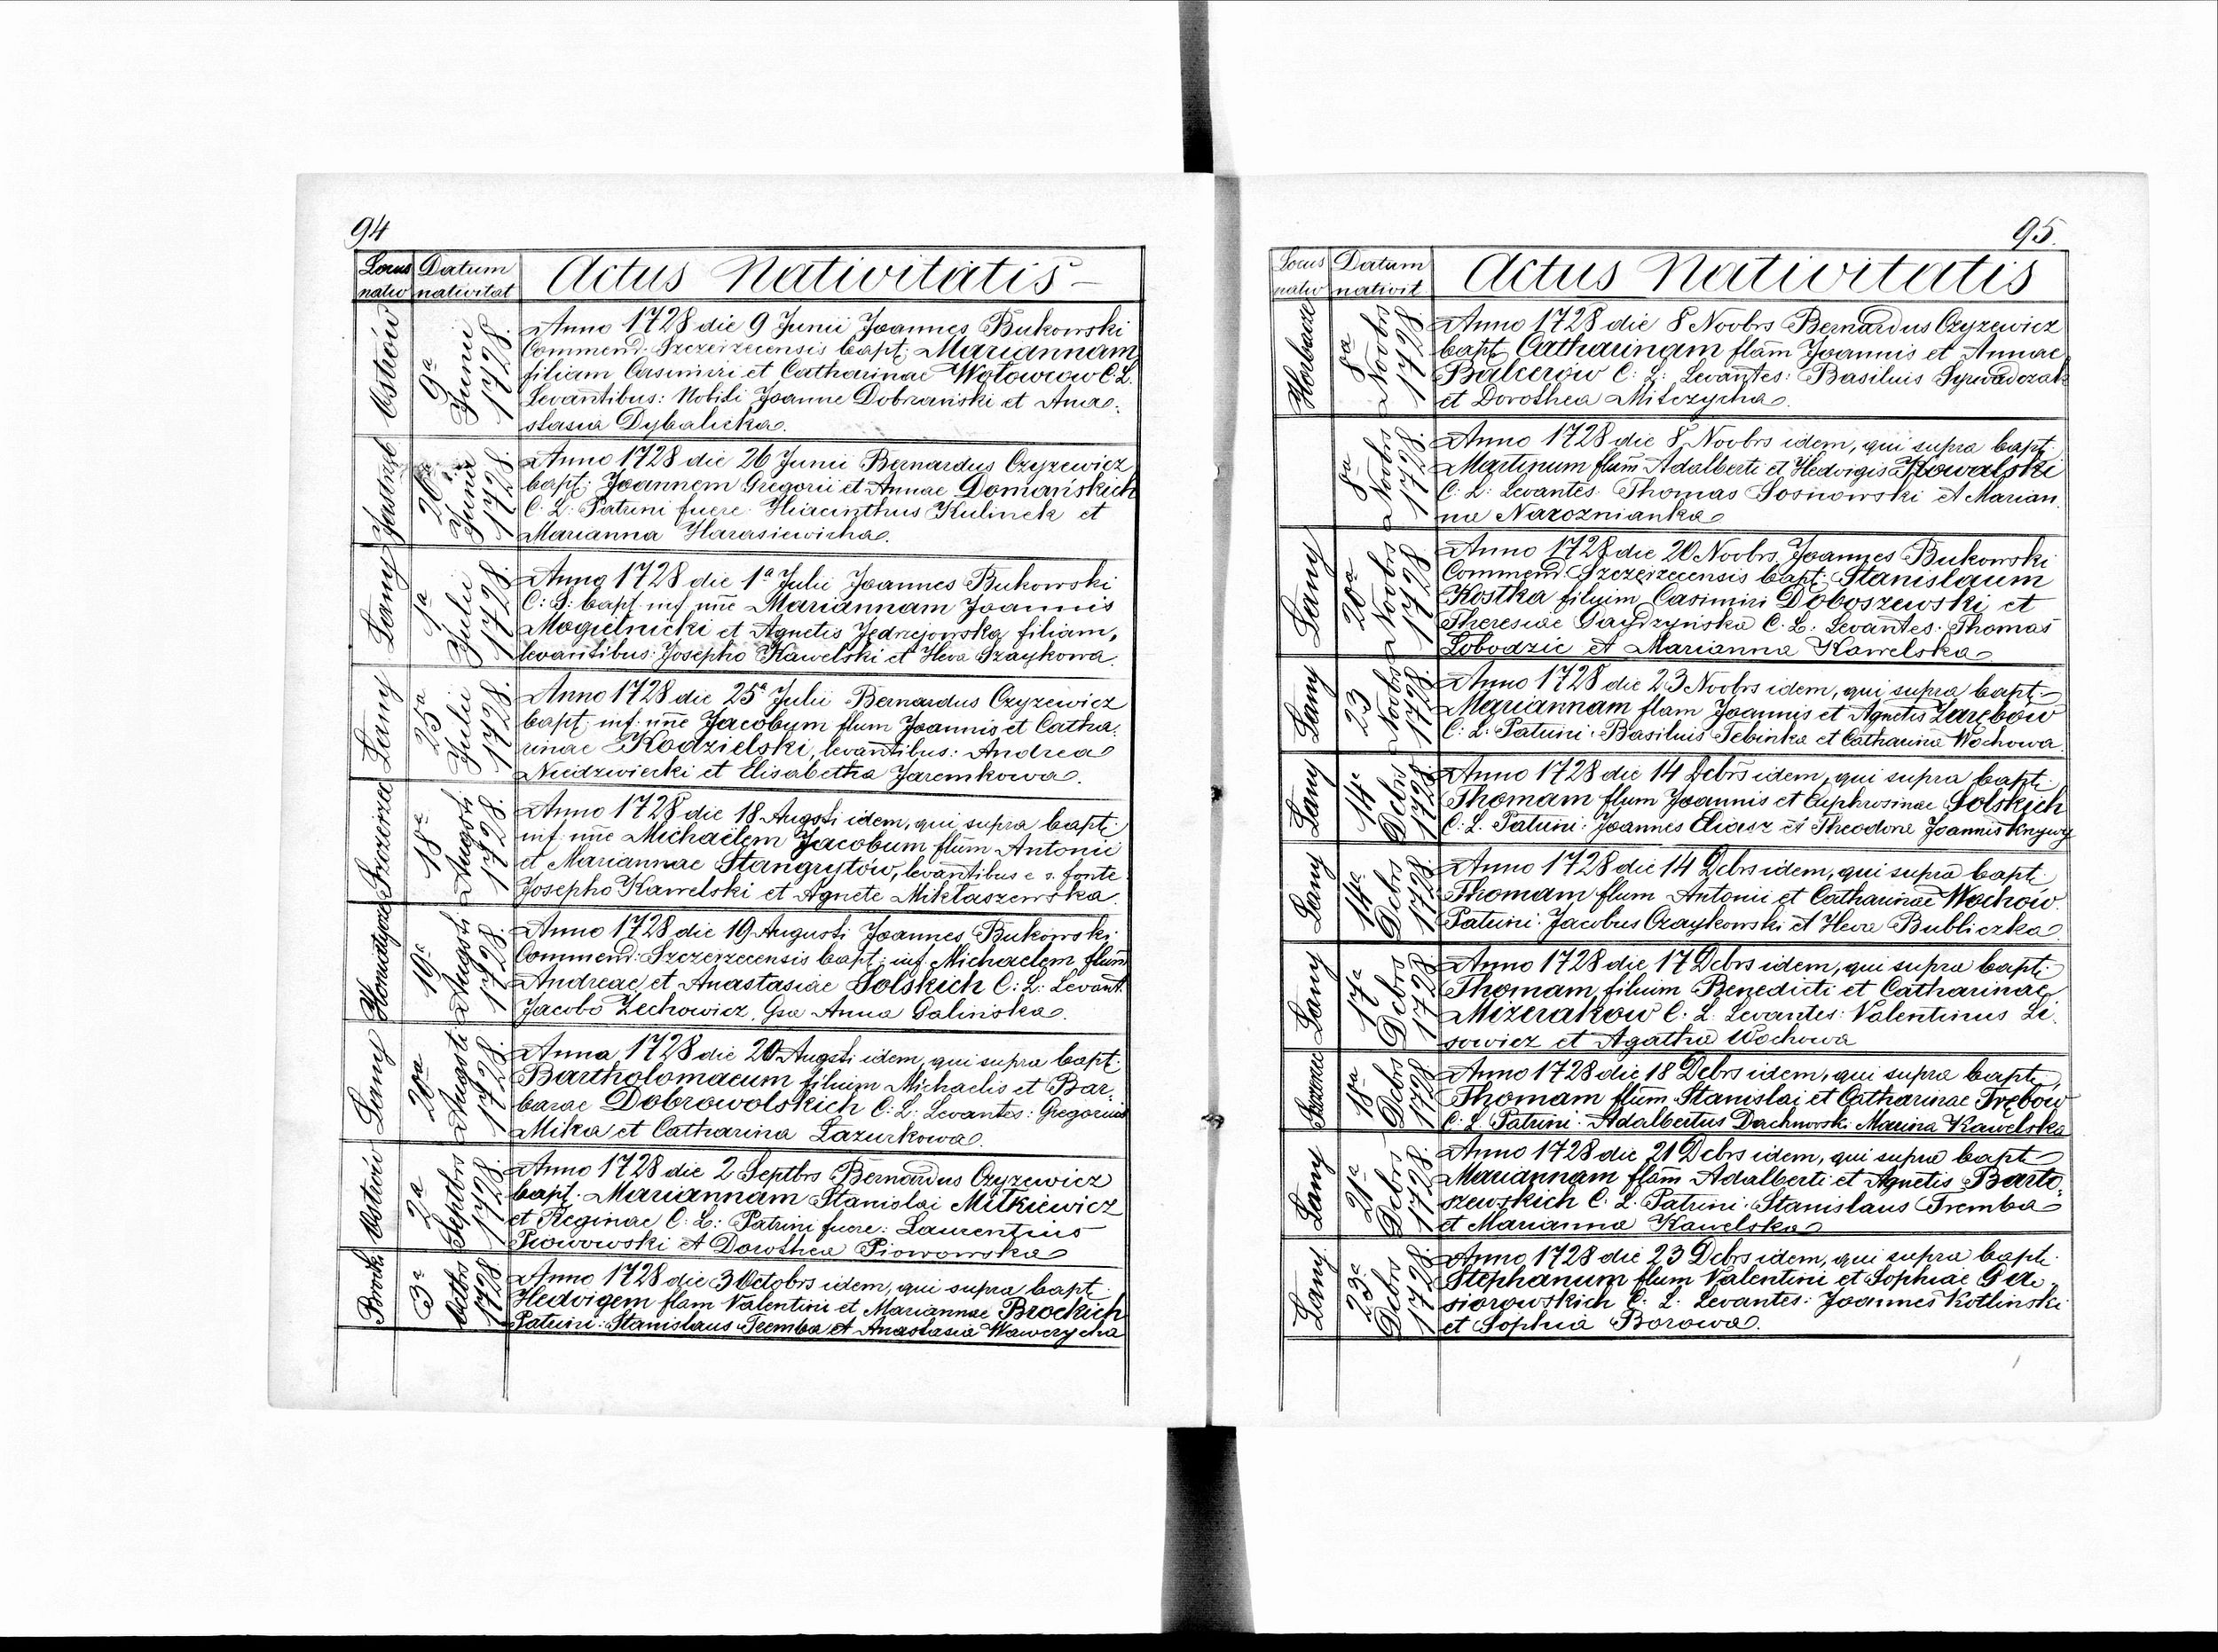 94
Locus nativ
Datum nativitat
Actus Nativitatis
Ostrów
9ª Junii 1728.
Anno 1728 die 9 Junii Joannes Bukowski
Commend. Szczerzecensis bapt: Mariannam
filiam Casimiri et Catharinae Wołowców C. L.
Levantibus: Nobili Joanne Dobrzański et Ana-
stasia Dybalicka.
Jastrząb
26ª Junii 1728.
Anno 1728 die 26 Junii Bernardus Czyzewicz
bapt: Joannem Gregorii et Annae Domańskich
C. L. Patrini fuere: Hiacinthus Kulinek et
Marianna Harasiewicha.
Łany
1ª Julii 1728.
Anno 1728 die 1ª Julii Joannes Bukowski
C: S: bapt. inf. nñe Mariannam Joannis
Mogielnicki et Agnetis Jędrzejowska filiam,
levantibus: Josepho Kawelski et Heva Szaykowa.
Łany
25ª Julii 1728.
Anno 1728 die 25ª Julii Bernardus Czyzewicz
bapt: inf. nñe Jacobum flum Joannis et Catha-
rinae Kodzielski, levantibus: Andrea
Niedzwiecki et Elisabetha Jaremkowa.
Szczerzec
18ª Augsti 1728.
Anno 1728 die 18 Augsti idem, qui supra bapti
inf: nñe Michaëlem Jacobum flum Antonii
et Mariannae Stangrytów, levantibus e s. fonte
Josepho Kawelski et Agnete Mikłaszewska.
19ª Augusti 1728.
Anno 1728 die 19 Augusti Joannes Bukowski
Commend: Szczerzecensis bapt: inf. Michaelem flum
Andreae et Anastasiae Solskich C: L: Levant.
Jacobo Zechowicz, Gsa Anna Galinska.
Łany
20ª Augusti 1728.
Anna 1728 die 20 Augsti idem, qui supra bapt:
Bartholomaeum filium Michaelis et Bar-
barae Dobrowolskich C: L: Levantes: Gregorius
Mika et Catharina Łazurkowa.
Ostrów
2ª Septbrs 1728.
Anno 1728 die 2 Septbrs Bernardus Czyzewicz
bapt. Mariannam Stanislai Mitkiewicz
et Reginae C: L: Patrini fuere: Laurentius
Piowowski et Dorothea Piowowska
Brocki
3ª Octbrs 1728.
Anno 1728 die 3 Octobrs idem, qui supra bapt:
Hedvigem flam Valentini et Mariannae Brockich
Patrini: Stanislaus Tremba et Anastasia Wawrzycha
95.
Locus nativ
Datum nativit.
Actus Nativitatis
Horbacze
8ª Novbrs 1728.
Anno 1728 die 8 Novbrs Bernardus Czyzewicz
bapt. Catharinam flam Joannis et Annae
Balcerów C: L: Levantes: Basilius Syrwadczak
et Dorothea Misczycha.
8ª Novbrs 1728.
Anno 1728 die 8 Novbrs idem, qui supra bapt.
Martinum flum Adalberti et Hedvigis Kowalski
C: L: Levantes: Thomas Sosnowski et Marian-
na Narożnianka
Łany
20ª Novbrs 1728
Anno 1728 die 20 Novbrs. Joannes Bukowski
Commend: Szczerzecensis bapt: Stanislaum
Kostka filium Casimiri Doboszewski et
Theresiae Gaydzyńska C. L. Levantes: Thomas
Łobodzic et Marianna Kawelska
Łany
23 Novbrs 1728.
Anno 1728 die 23 Novbrs idem, qui supra bapt.
Mariannam flam Joannis et Agnetis Zarębów
C: L: Patrini: Basilius Tebinka et Catharina Wochowa.
Łany
14ª Debrs 1728.
Anno 1728 die 14 Debrs idem, qui supra bapt.
Thomam flum Joannis et Euphrosinae Solskich
C: L. Patrini: Joannes Eliasz et Theodora Joannis Krzywy
Łany
14ª Debrs 1728.
Anno 1728 die 14 Debrs idem, qui supra bapt.
Thomam flum Antonii et Catharinae Wochów.
Patrini: Jacobus Czaykowski et Heva Bubliczka.
Łany
17ª Debrs 1728
Anno 1728 die 17 Debrs idem, qui supra bapti
Thomam filium Benedicti et Catharinae
Mizeraków C: L. Levantes: Valentinus Li-
sowicz et Agatha Wochowa
18ª Debrs 1728
Anno 1728 die 18 Debrs idem, qui supra bapti
Thomam flum Stanislai et Catharinae Trębów
C: L. Patrini: Adalbertus Dachnowski Marina Kawelska
Łany
21ª Debrs 1728.
Anno 1728 die 21 Debrs idem, qui supra bapt
Mariannam flam Adalberti et Agnetis Barto-
szewskich C. L. Patrini: Stanislaus Tremba
et Marianna Kawelska
Łany
23ª Debrs 1728.
Anno 1728 die 23 Debrs idem, qui supra bapt.
Stephanum flum Valentini et Sophiae Gą-
siorowskich C. L. Levantes: Joannes Kotlinski
et Sophia Borowa.